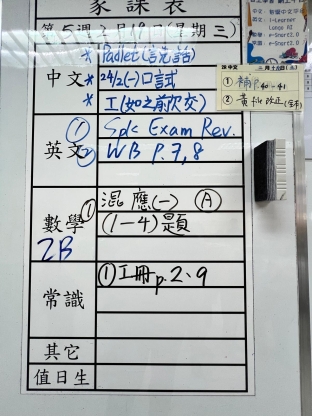 家課表
第5週2月19日(星期三)
* Padlet(言先話)
中文 24/2(一)口試
* 工(如之前收交)
英文 ① Spk Exam Rev.
② WB P.7,8
數學 ① 混應(一) Ⓐ
2B (1-4)題
常識 ① 工冊p.2、9
其它
值日生
① 補P.40-41
② 黃file改正(全部)